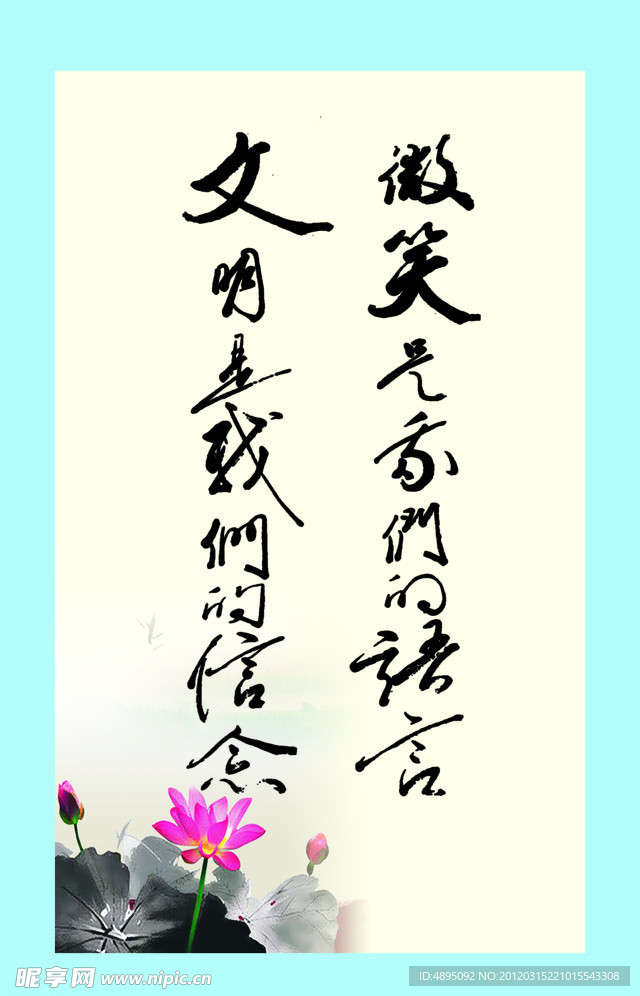 微笑是我們的語言
文明是我們的信念
昵享网 www.nipic.cn
ID:4895092 NO:20120315221015543308